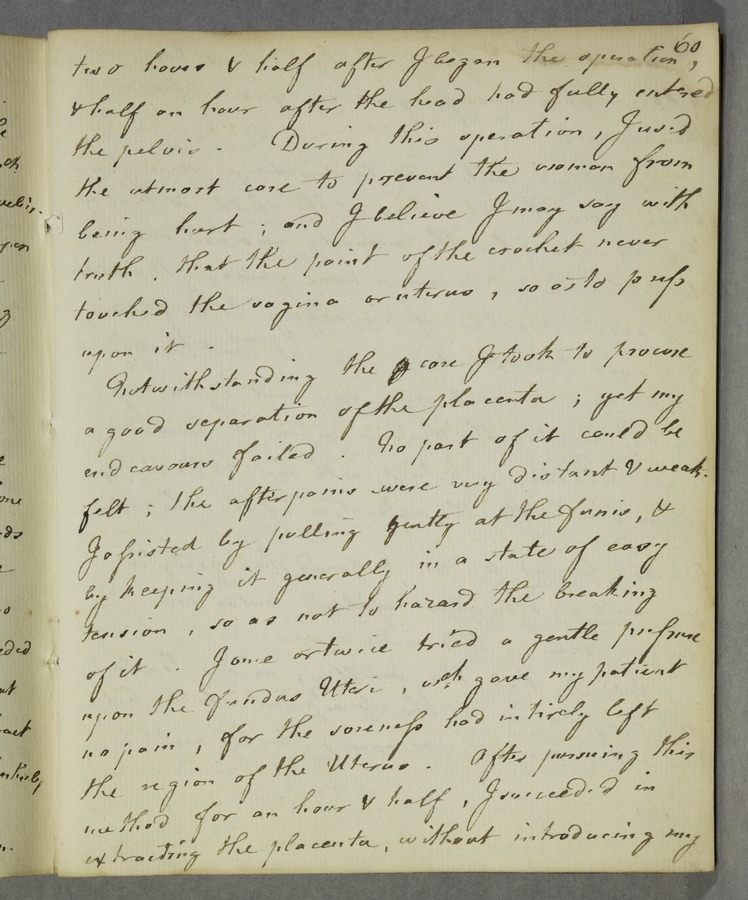 60
two hours & half after I began the operation,
& half an hour after the head had fully entered
the pelvis. During this operation, I used
the utmost care to prevent the woman from
being hurt; and I believe I may say with
truth, that the point of the crochet never
touched the vagina or uterus, so as to press
upon it.
Notwithstanding the care I took to procure
a good separation of the placenta; yet my
endeavours failed. No part of it could be
felt; the afterpains were very distant & weak.
I assisted by pulling gently at the funis, &
by keeping it generally in a state of easy
tension, so as not to hazard the breaking
of it. I once or twice tried a gentle pressure
upon the fundus Uteri, wch. gave my patient
no pain, for the soreness had intirely left
the region of the Uterus. After pursuing this
method for an hour & half, I succeeded in
extracting the placenta, without introducing my